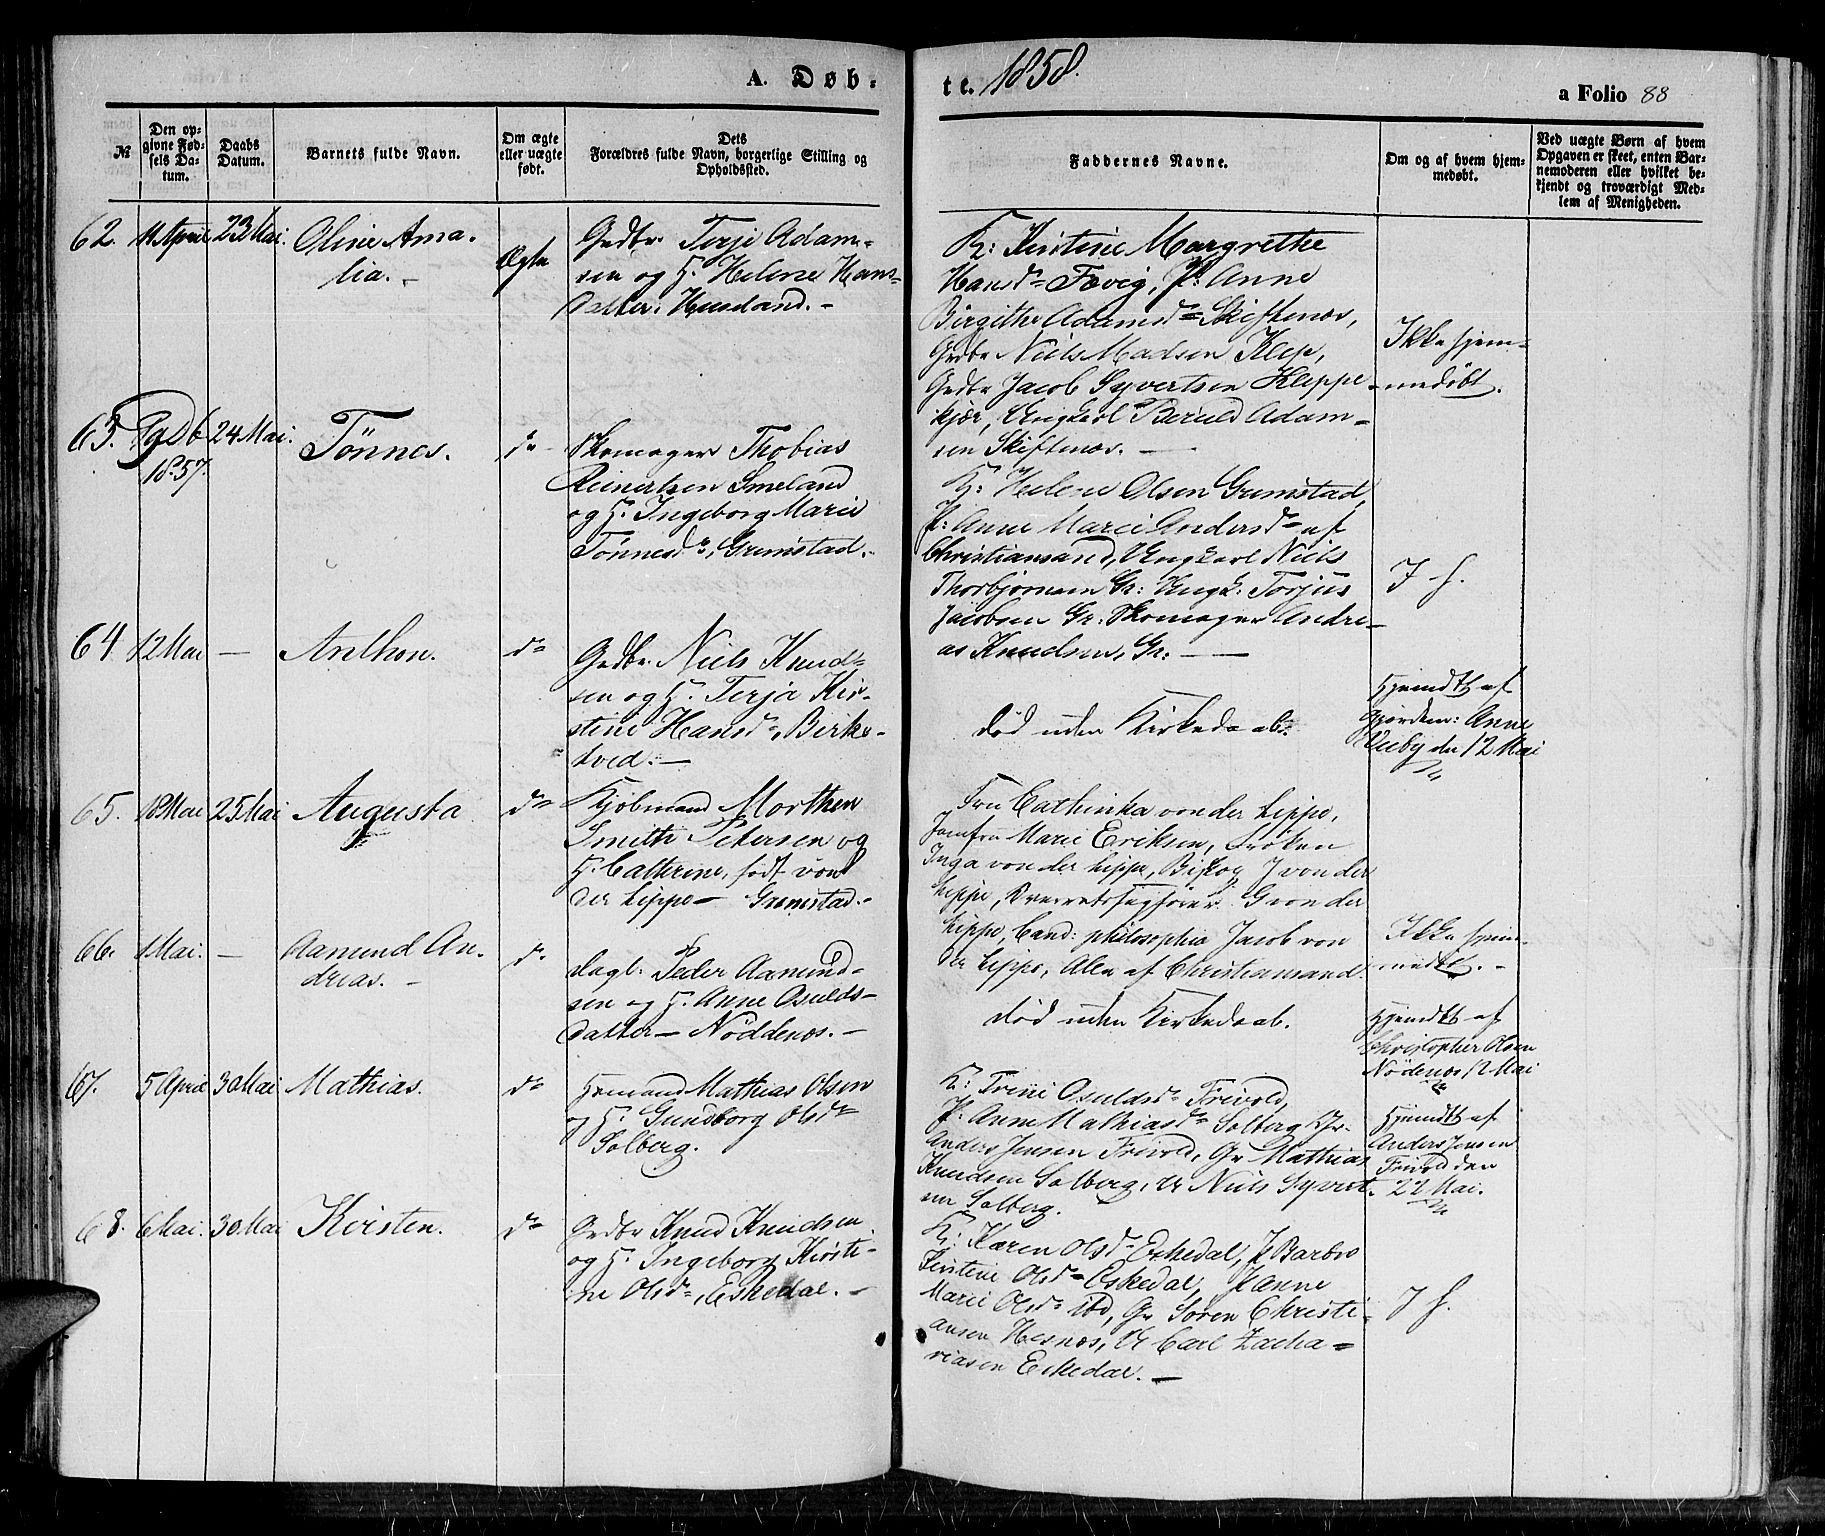 A. Døb-
te. 1858.
a Folio 88
№
Den op-
givne Fød-
sels Da-
tum.
Daabs
Datum.
Barnets fulde Navn.
Om ægte
eller uægte
født.
Dets
Forældres fulde Navn, borgerlige Stilling og
Opholdssted.
Faddernes Navne.
Om og af hvem hjem-
medøbt.
Ved uægte Børn af hvem
Opgaven er skeet, enten Bar-
nemoderen eller hvilket be-
kjendt og troværdigt Med-
lem af Menigheden.
62.
11 April
23 Mai.
Oline Ama-
lia. -
Ægte
Grdbr. Terje Adam-
sen og H. Helene Hans-
datter. Huseland. -
K: Kirstine Margrethe
Hansd. Fævig, P: Anne
Birgithe Adamsd. Skiftenæs,
Grdbr Niels Madsen Klep,
Grdbr Jacob Syvertsen Kleppe-
kjær, Ungkarl Berulf Adam-
sen Skiftenæs. -
Ikke hjem-
medøbt.
63.
29 Db
1857.
24 Mai.
Tønnes.
do
Skomager Thobias
Reinertsen Smeland
og H. Ingeborg Marie
Tønnesdr, Grimstad. -
K: Helene Olsen Grimstad,
P: Anne Marie Andersd. af
Christiansand, Ungkarl Niels
Thorbjørnsen Gr: Ungk: Torjus
Jacobsen Gr. Skomager Andre-
as Knudsen, Gr: -
I h.
64.
12 Mai
-
Anthon.
do
Grdbr. Niels Knud-
sen og H. Terja Kir-
stine Hansd., Birke-
tved. -
død uden Kirkedaab.
Hjemdt af
Gjordem: Anne
Vieby den 12 Mai
65.
18 Mai
25 Mai
Augusta
do
Kjøbmand Morthen
Smith Petersen og
H. Cathrine, født von
der Lippe - Grimstad. -
Fru Cathinka von der Lippe,
Jomfru Marie Eriksen, Frøken
Inga von der Lippe, Biskop J von der
Lippe, Overretssagfører G von der
Lippe, Cand: philosophia Jacob von
der Lippe, Alle af Christiansand.
Ikke hjem-
medbt. -
66.
1 Mai.
-
Aamund An-
dreas. -
do
Dagl: Peder Aamund-
sen og H. Anne Osulds-
datter - Nøddenæs. -
død uden Kirkedaab.
Hjemdt af
Christopher Olsen
Nødenæs 12 Mai
67.
5 April
30 Mai
Mathias.
do
Hrmand Mathias Olsen
og H: Gundborg Olsd.
Solberg.
K: Trine Osuldsd. Frivold,
P: Anne Mathiasd. Solberg Gr.
Anders Jensen Frivold, Gr Mathias
Knudsen Solberg, U Niels Syvert-
sen Solberg.
Hjemdt af
Anders Jensen
Frivold den
22 Mai.
68.
6 Mai.
30 Mai
Kirsten.
do
Grdbr Knud Knudsen
og H. Ingeborg Kirsti-
ne Olsd., Eskedal. -
K: Karen Olsd. Eskedal, P Barbro
Kirstine Olsd. Eskedal, P Anne
Marie Olsd. ibd, Gr Søren Christi-
ansen Hesnæs, U Carl Zacha-
riasen Eskedal. -
I h.